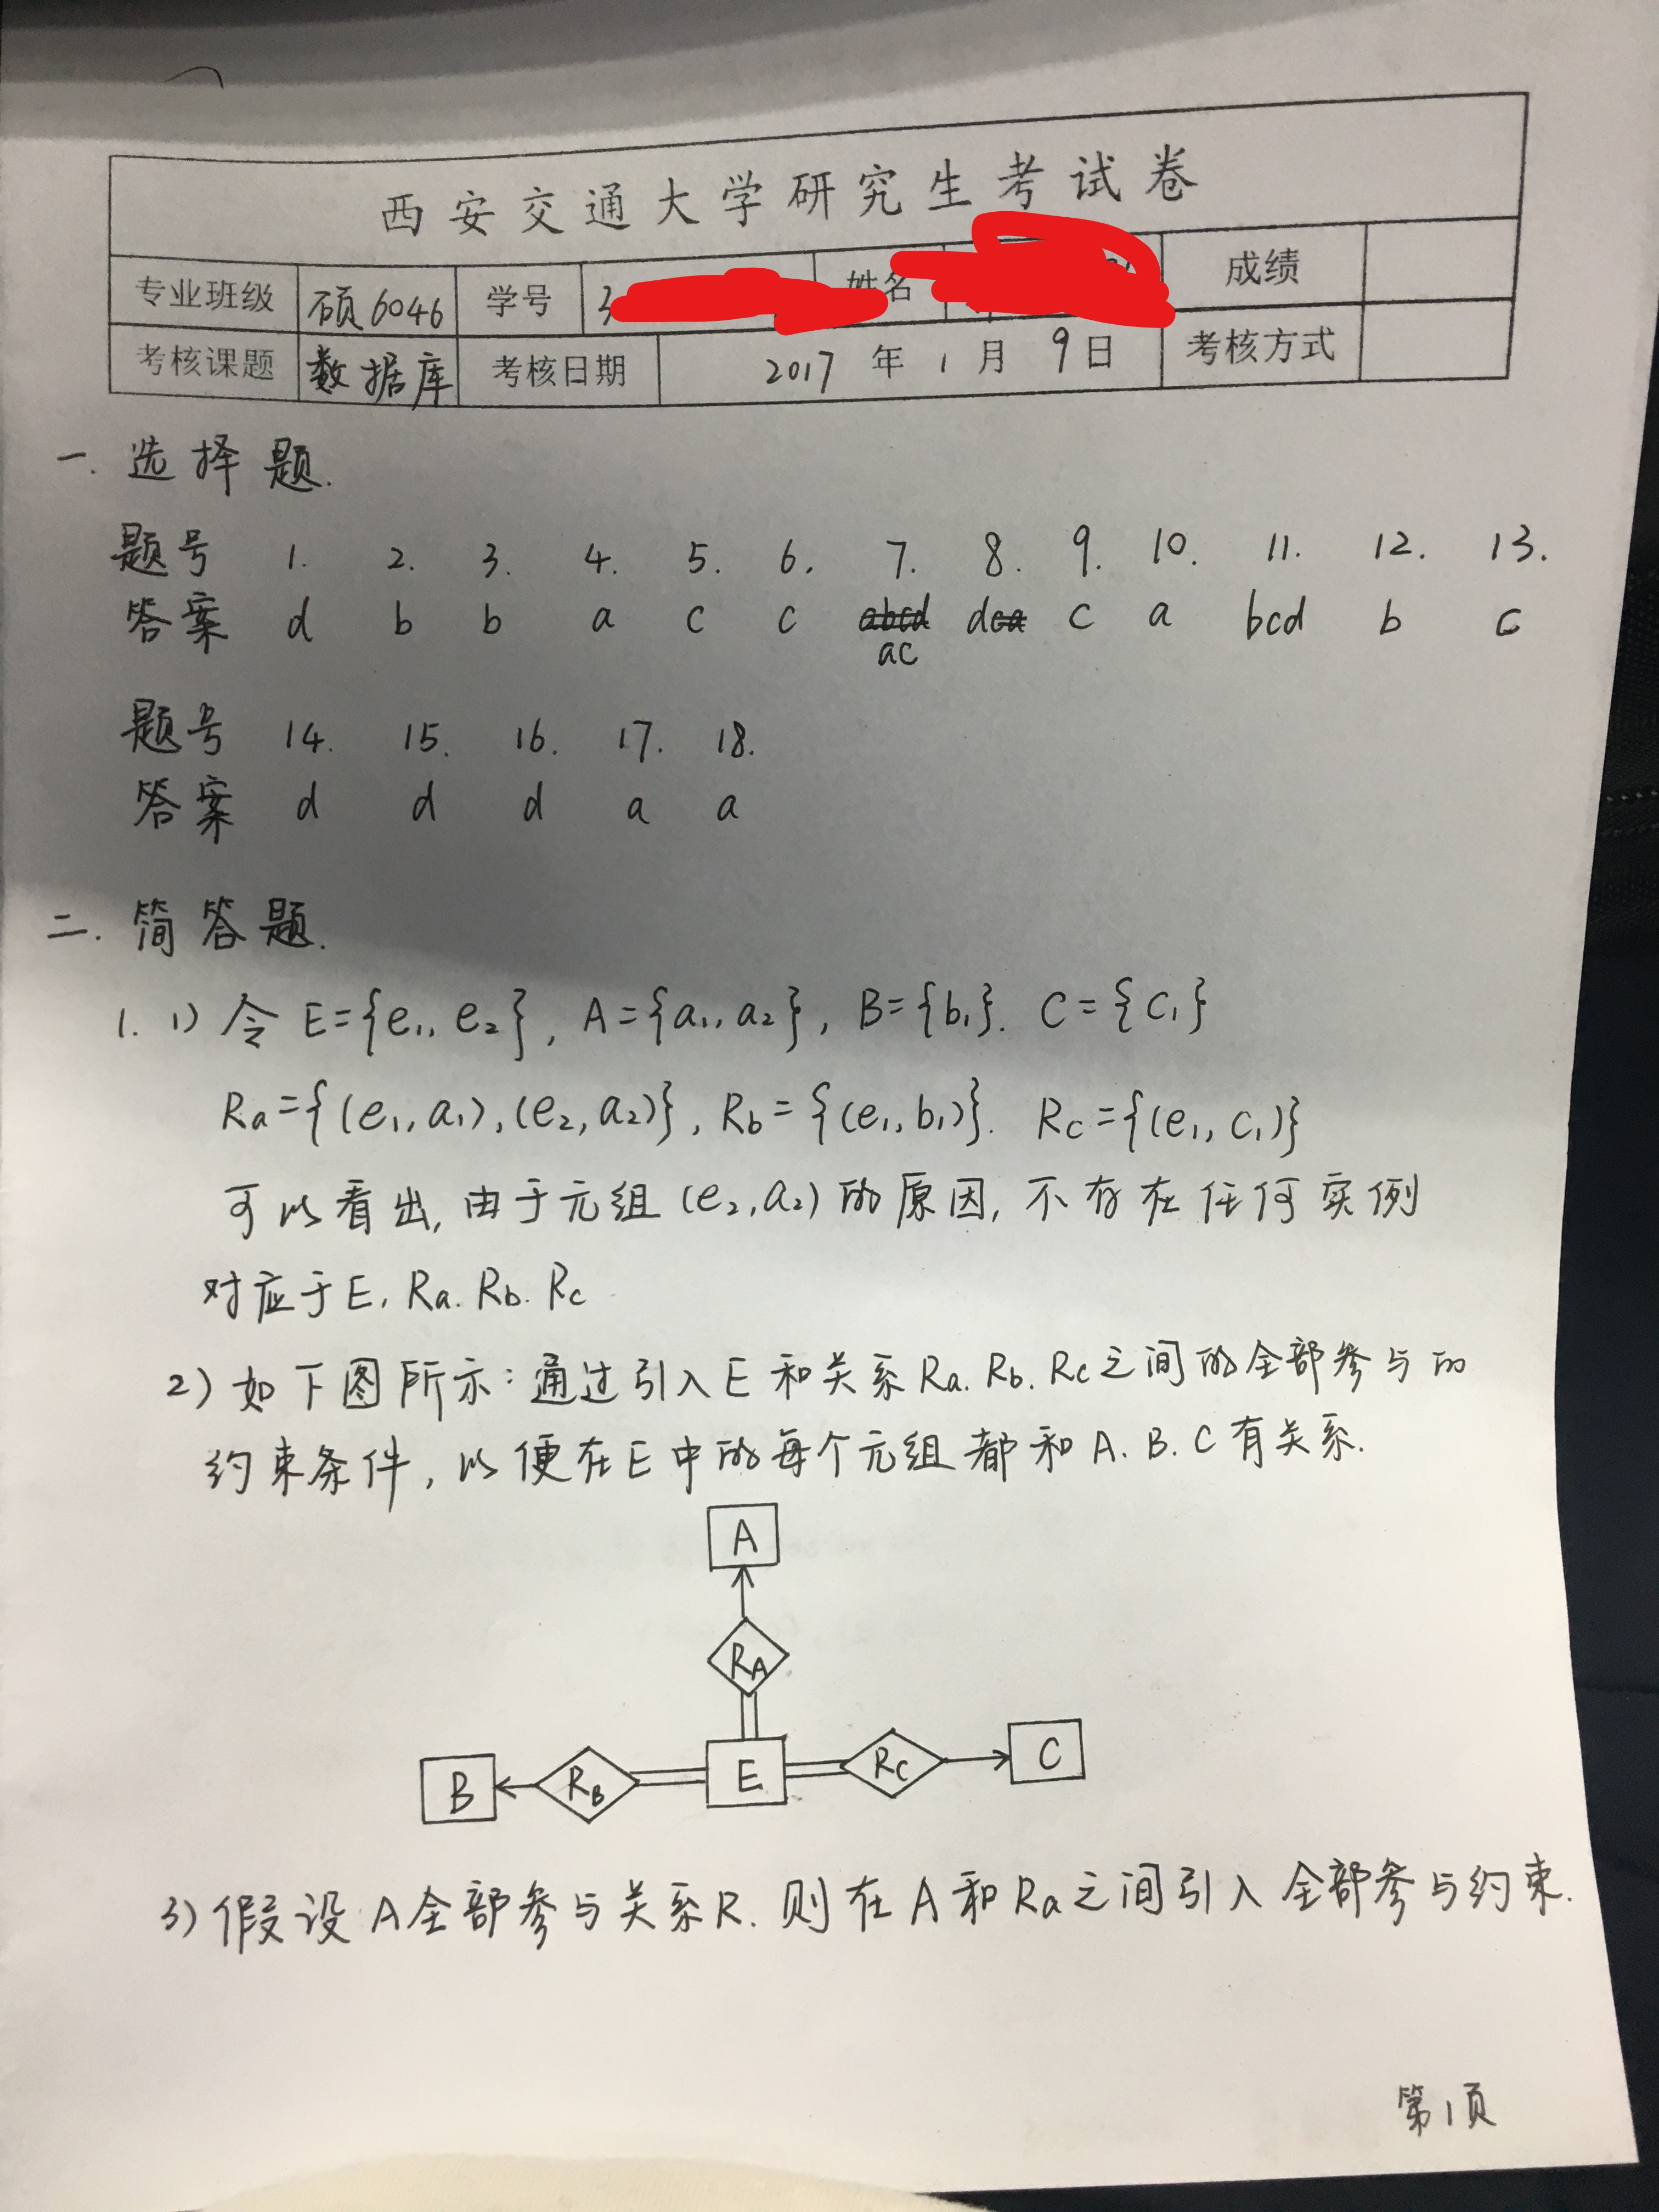 西安交通大学研究生考试卷
专业班级 硕6046 学号 3 姓名 成绩
考核课题 数据库 考核日期 2017 年 1 月 9 日 考核方式
一. 选择题.
题号 1. 2. 3. 4. 5. 6. 7. 8. 9. 10. 11. 12. 13.
答案 d b b a c c abcd dca c a bcd b c
ac
题号 14. 15. 16. 17. 18.
答案 d d d a a
二. 简答题.
1. 1) 令 E={e₁, e₂}, A={a₁, a₂}, B={b₁}. C={c₁}
Ra={(e₁, a₁), (e₂, a₂)}, Rb={(e₁, b₁)}. Rc={(e₁, c₁)}
可以看出, 由于元组(e₂, a₂)的原因, 不存在任何实例
对应于E, Ra. Rb. Rc
2) 如下图所示: 通过引入E和关系Ra. Rb. Rc之间的全部参与的
约束条件, 以便在E中的每个元组都和A. B. C有关系.
A
RA
B RB E RC C
3) 假设A全部参与关系R. 则在A和Ra之间引入全部参与约束.
第1页